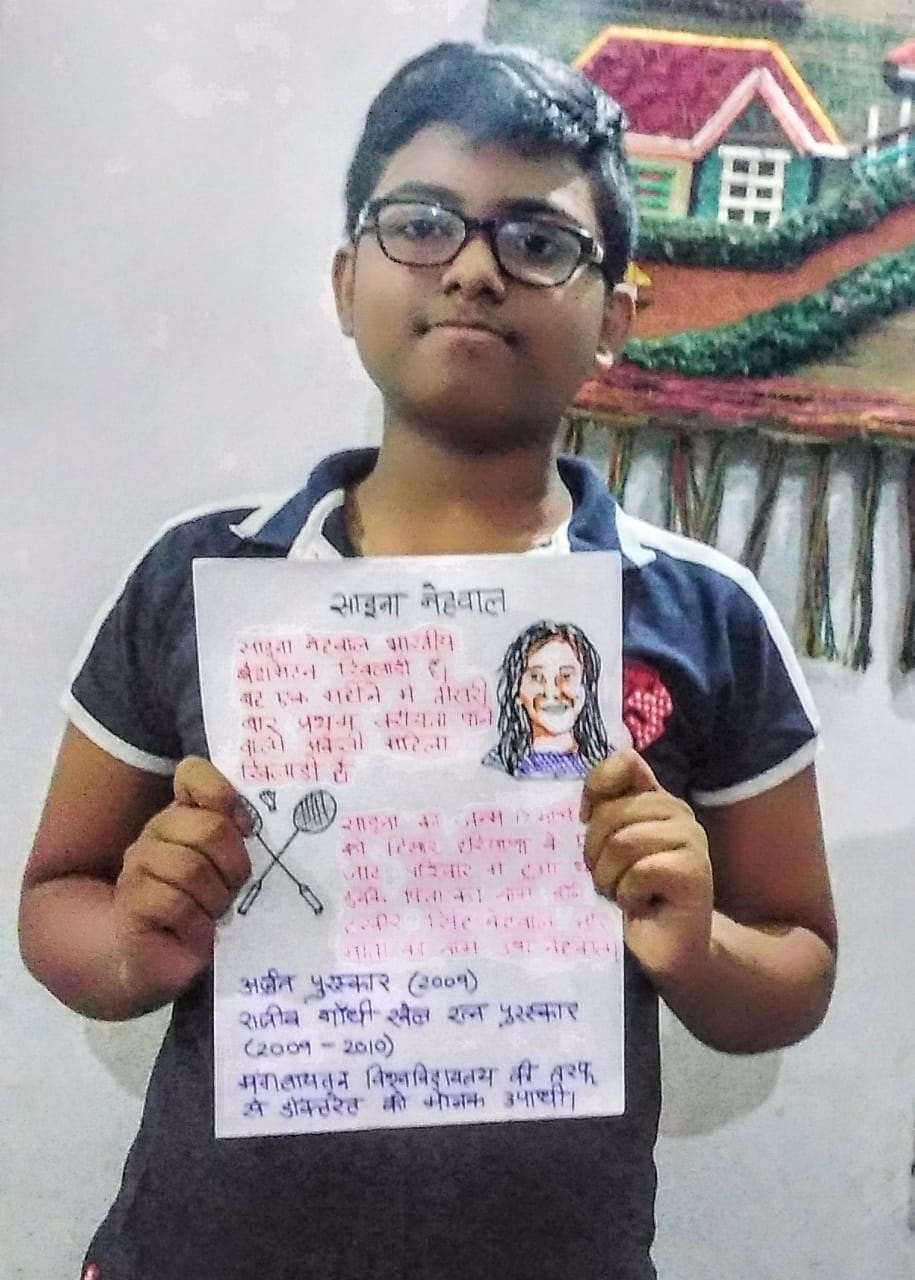 साइना नेहवाल
साइना नेहवाल भारतीय
बैडमिंटन खिलाडी है।
वह एक महीने में तीसरी
बार प्रथम वरीयता पाने
वाली अकेली महिला
खिलाडी है।
साइना का जन्म 17 मार्च
को हिसार हरियाणा के
जाट परिवार में हुआ
इनके पिता का नाम डॉ
सिंह नेहवाल
माता का नाम उषा नेहवाल
अर्जुन पुरस्कार (2009)
राजीव गाँधी खेल रत्न पुरस्कार
(2009 - 2010)
मंगलायतन विश्वविद्यालय की तरफ
से डॉक्टरेट की मानक उपाधी।